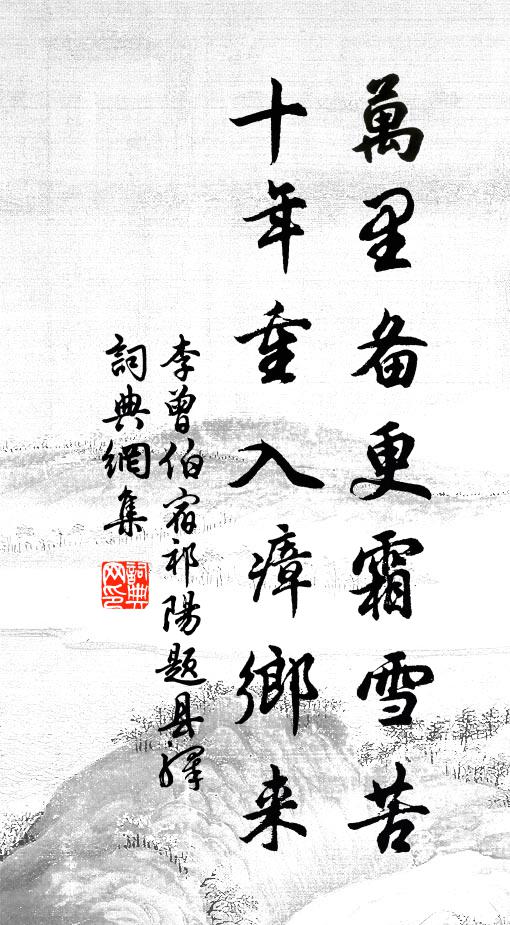 萬里备更霜雪苦
十年重入瘴鄉来
李曾伯宿祁陽題县驛
詞典網集
詞典
网印